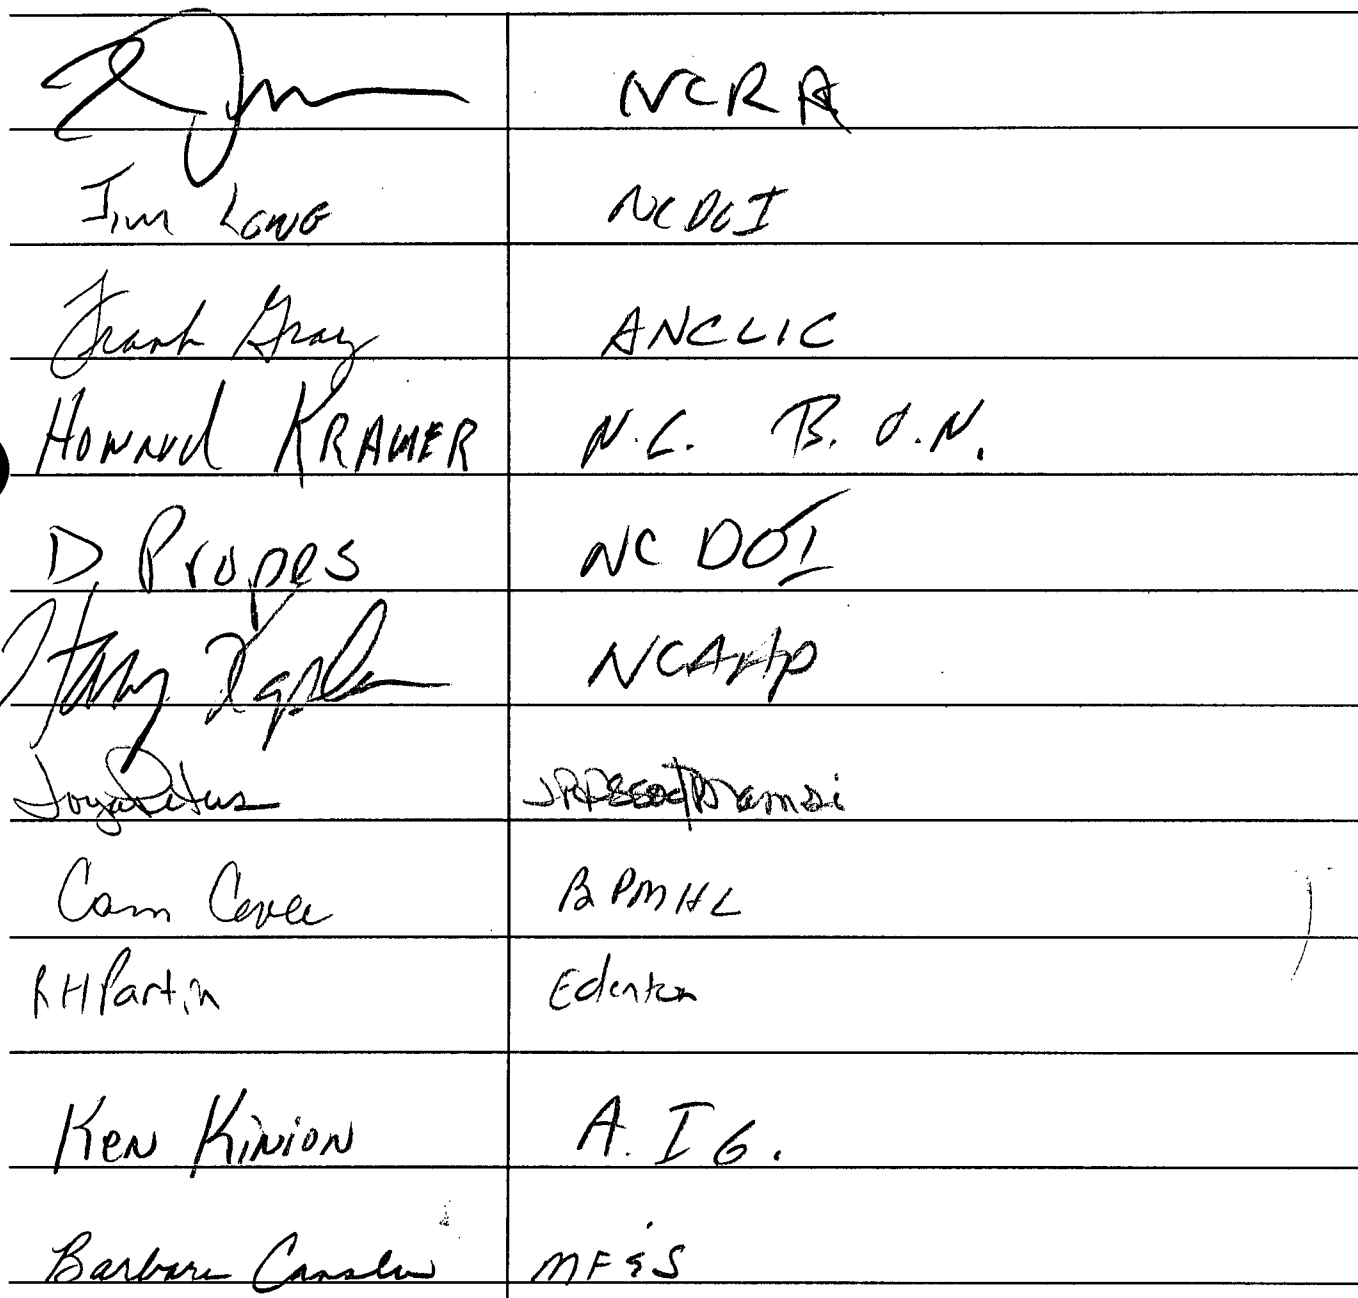 NCRA
Jim Long NCDOI
Frank Gray ANCLIC
Howard KRAMER N.C. B.O.N.
D Propes NC DOI
Kaplan NCAHP
BPMHL
RHPartin Edenton
Ken Kinion A.I G.
Barbara Cansler MF&S